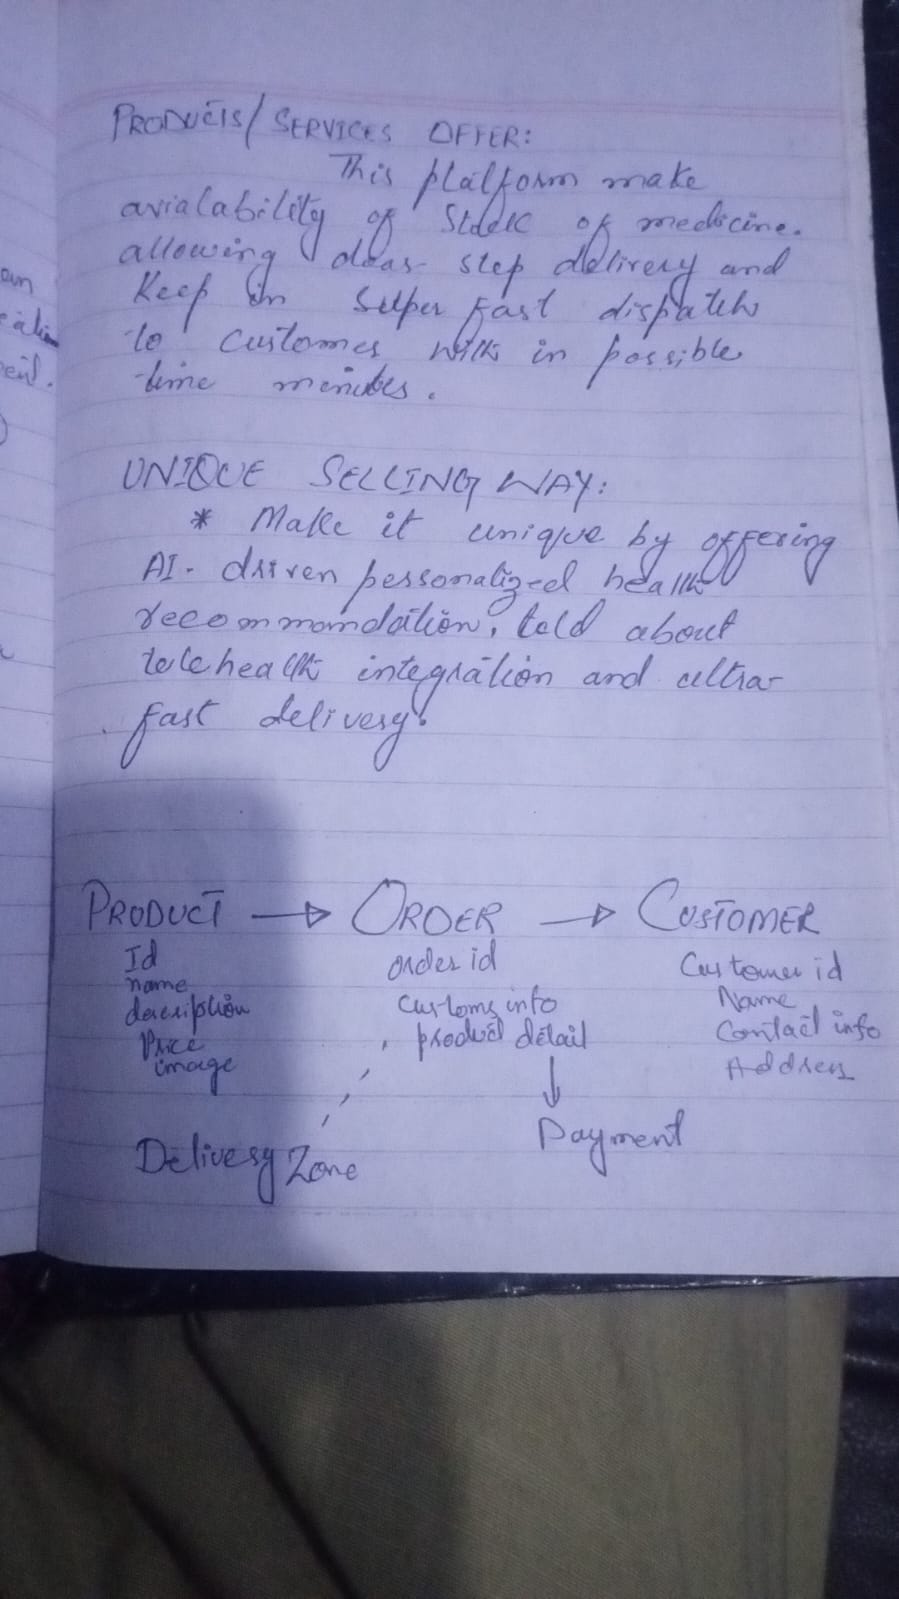 PRODUCTS/ SERVICES OFFER:
This platform make
avialability of Stock of medicine.
allowing door step delivery and
Keep in Supper fast dispatch
to customer with in possible
time minutes.
UNIQUE SELLING WAY:
* Make it unique by offering
AI- driven personalized health
recommomdation, told about
telehealth integration and ultra-
fast delivery.
PRODUCT → ORDER → CUSTOMER
Id
name
description
Price
image
order id
Custome info
product detail
Customer id
Name
Contact info
Address
Delivery Zone
Payment